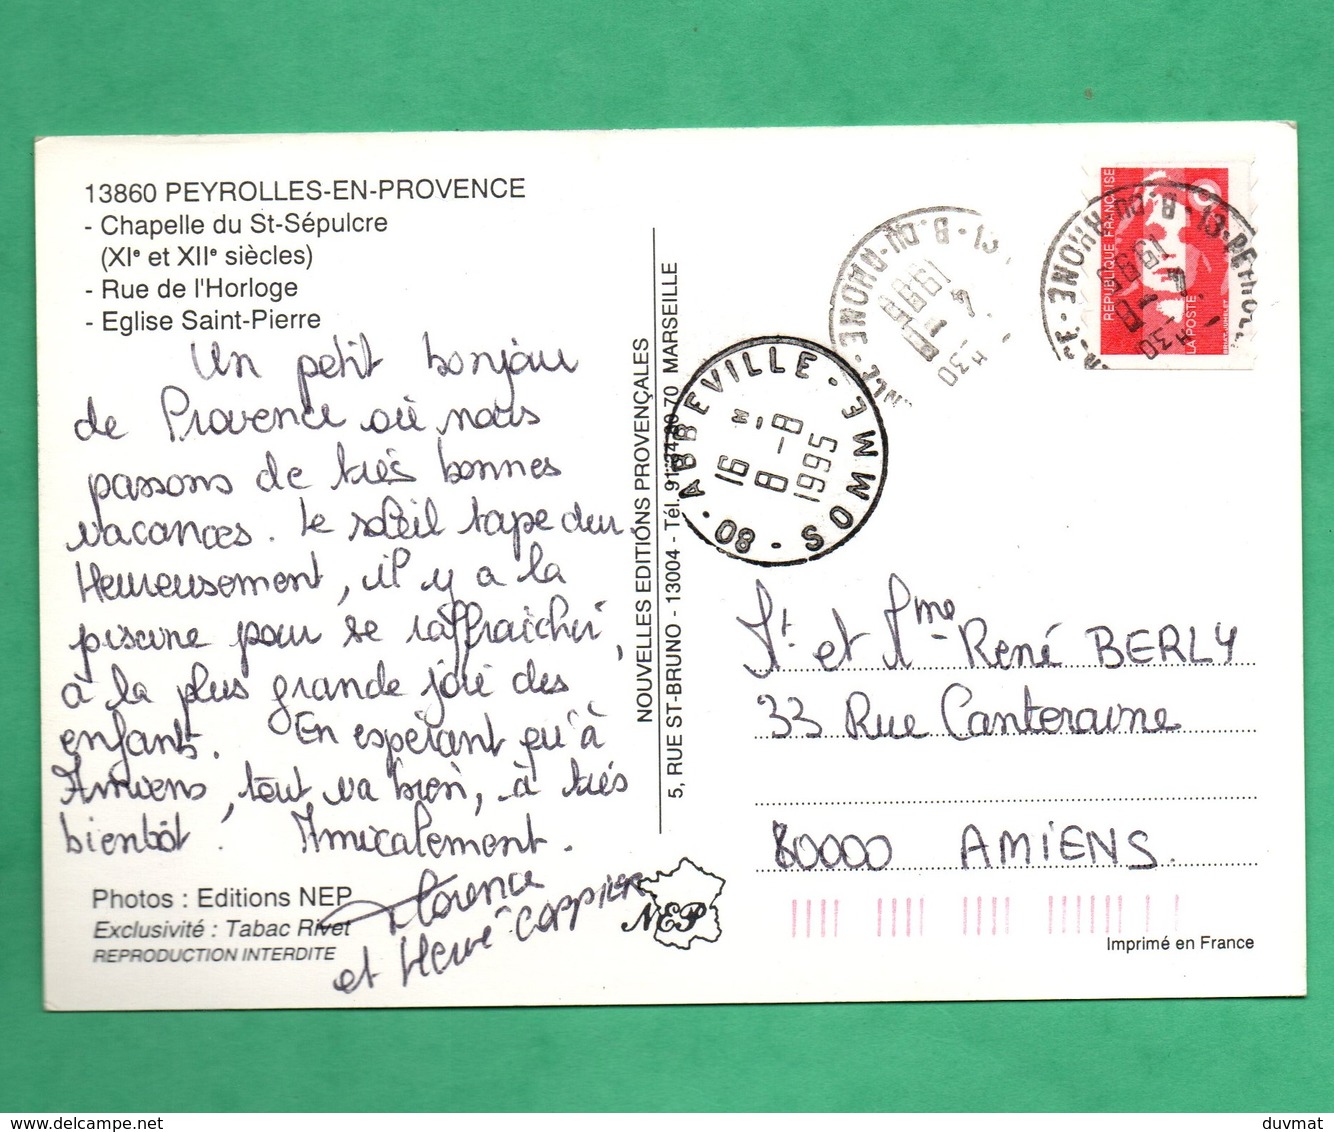 13860 PEYROLLES-EN-PROVENCE
- Chapelle du St-Sépulcre
(XIe et XIIe siècles)
- Rue de l'Horloge
- Eglise Saint-Pierre
Un petit bonjour
de Provence où nous
passons de très bonnes
vacances. Le soleil tape dur
Heureusement, il y a la
piscine pour se raffraichir,
à la plus grande joie des
enfants. En espérant qu'à
Amiens, tout va bien, à très
bientôt. Amicalement.
Florence
et Hervé COPPIER
Photos : Editions NEP
Exclusivité : Tabac Rivet
REPRODUCTION INTERDITE
NOUVELLES EDITIONS PROVENÇALES
5, RUE ST-BRUNO - 13004 - Tél. 91.34.80.70 MARSEILLE
NEP
80 - ABBEVILLE - SOMME
16 H
8 - 8
1995
13 - PEYROLLES
B. DU RHONE
1995
REPUBLIQUE FRANÇAISE
LA POSTE
Mr et Mme René BERLY
33 Rue Canteraine
80000 AMIENS.
Imprimé en France
duvmat